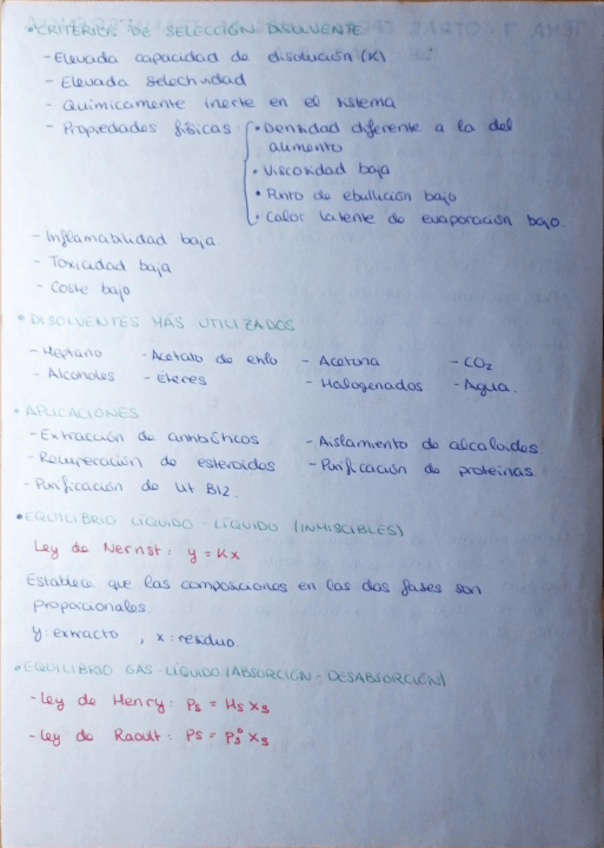 • CRITERIOS DE SELECCIÓN DISOLVENTE
- Elevada capacidad de disolución (K)
- Elevada selectividad
- Químicamente inerte en el sistema
- Propiedades físicas { • Densidad diferente a la del
alimento
• Viscosidad baja
• Punto de ebullución bajo
• Calor latente de evaporación bajo.
- Inflamabilidad baja.
- Toxicidad baja
- Coste bajo
• DISOLVENTES MÁS UTILIZADOS
- Heptano - Acetato de etilo - Acetona - CO₂
- Alcoholes - Éteres - Halogenados - Agua.
• APLICACIONES
- Extracción de antibióticos - Aislamiento de alcaloides.
- Recuperación de esteroides - Purificación de proteínas.
- Purificación de vit B12.
• EQUILIBRIO LÍQUIDO - LÍQUIDO (INMISCIBLES)
Ley de Nernst: y = Kx
Establece que las composiciones en las dos fases son
proporcionales.
y: extracto , x: residuo.
• EQUILIBRIO GAS-LÍQUIDO (ABSORCIÓN - DESABSORCIÓN)
- Ley de Henry: Ps = Hs xs
- Ley de Raoult: Ps = Ps° xs